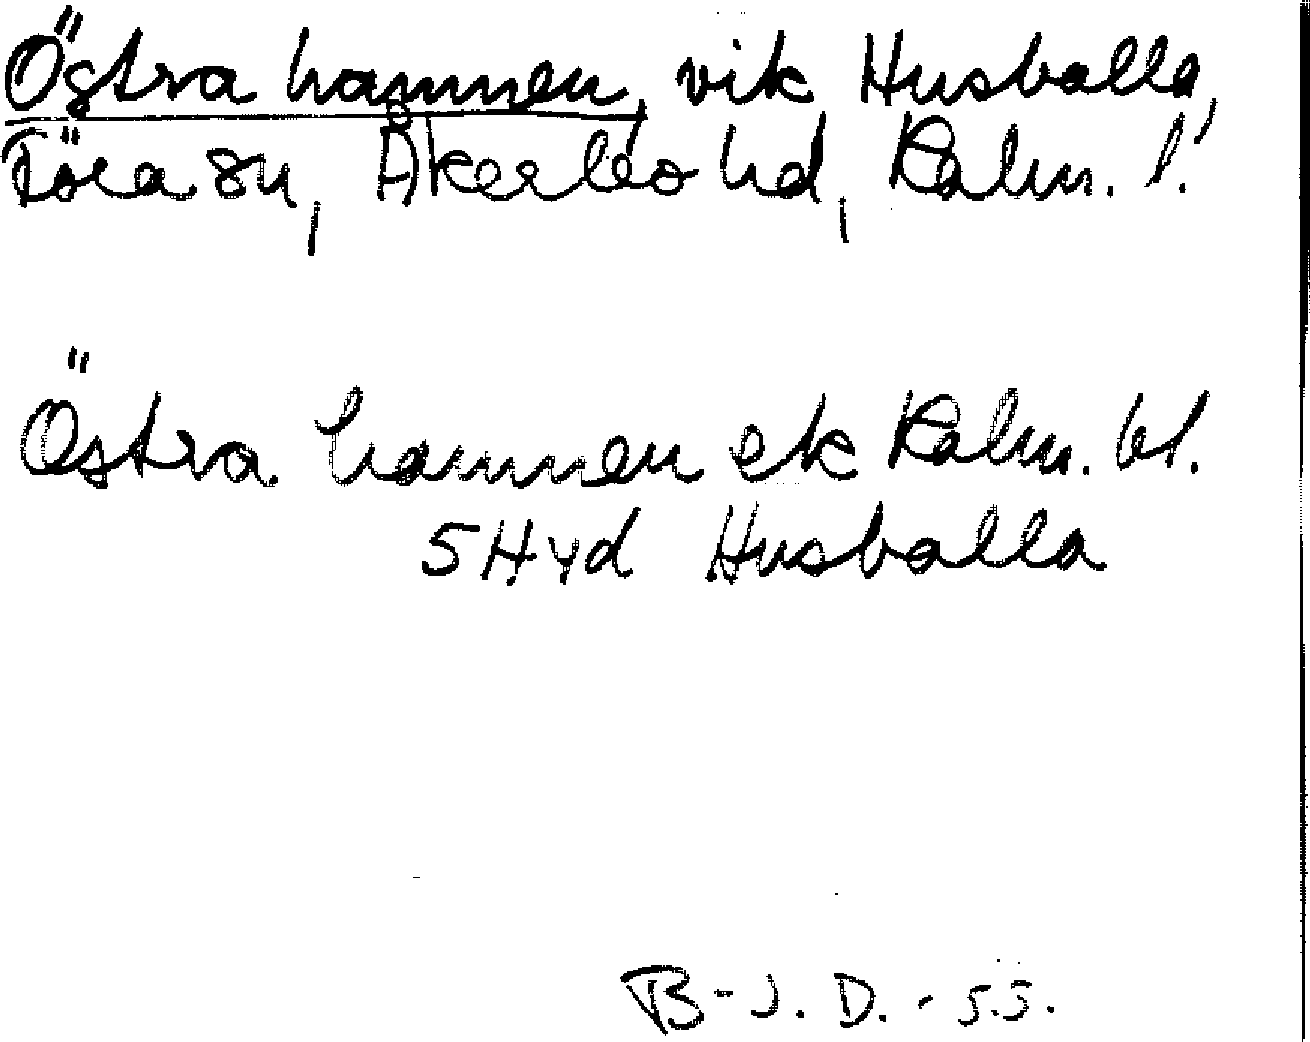 Östra hamnen, vik Husvalla,
Föra sn, Åkerbo hd, Kalm. l.
Östra hamnen ek Kalm. bl.
5H yd Husvalla
B-J. D. - 55.